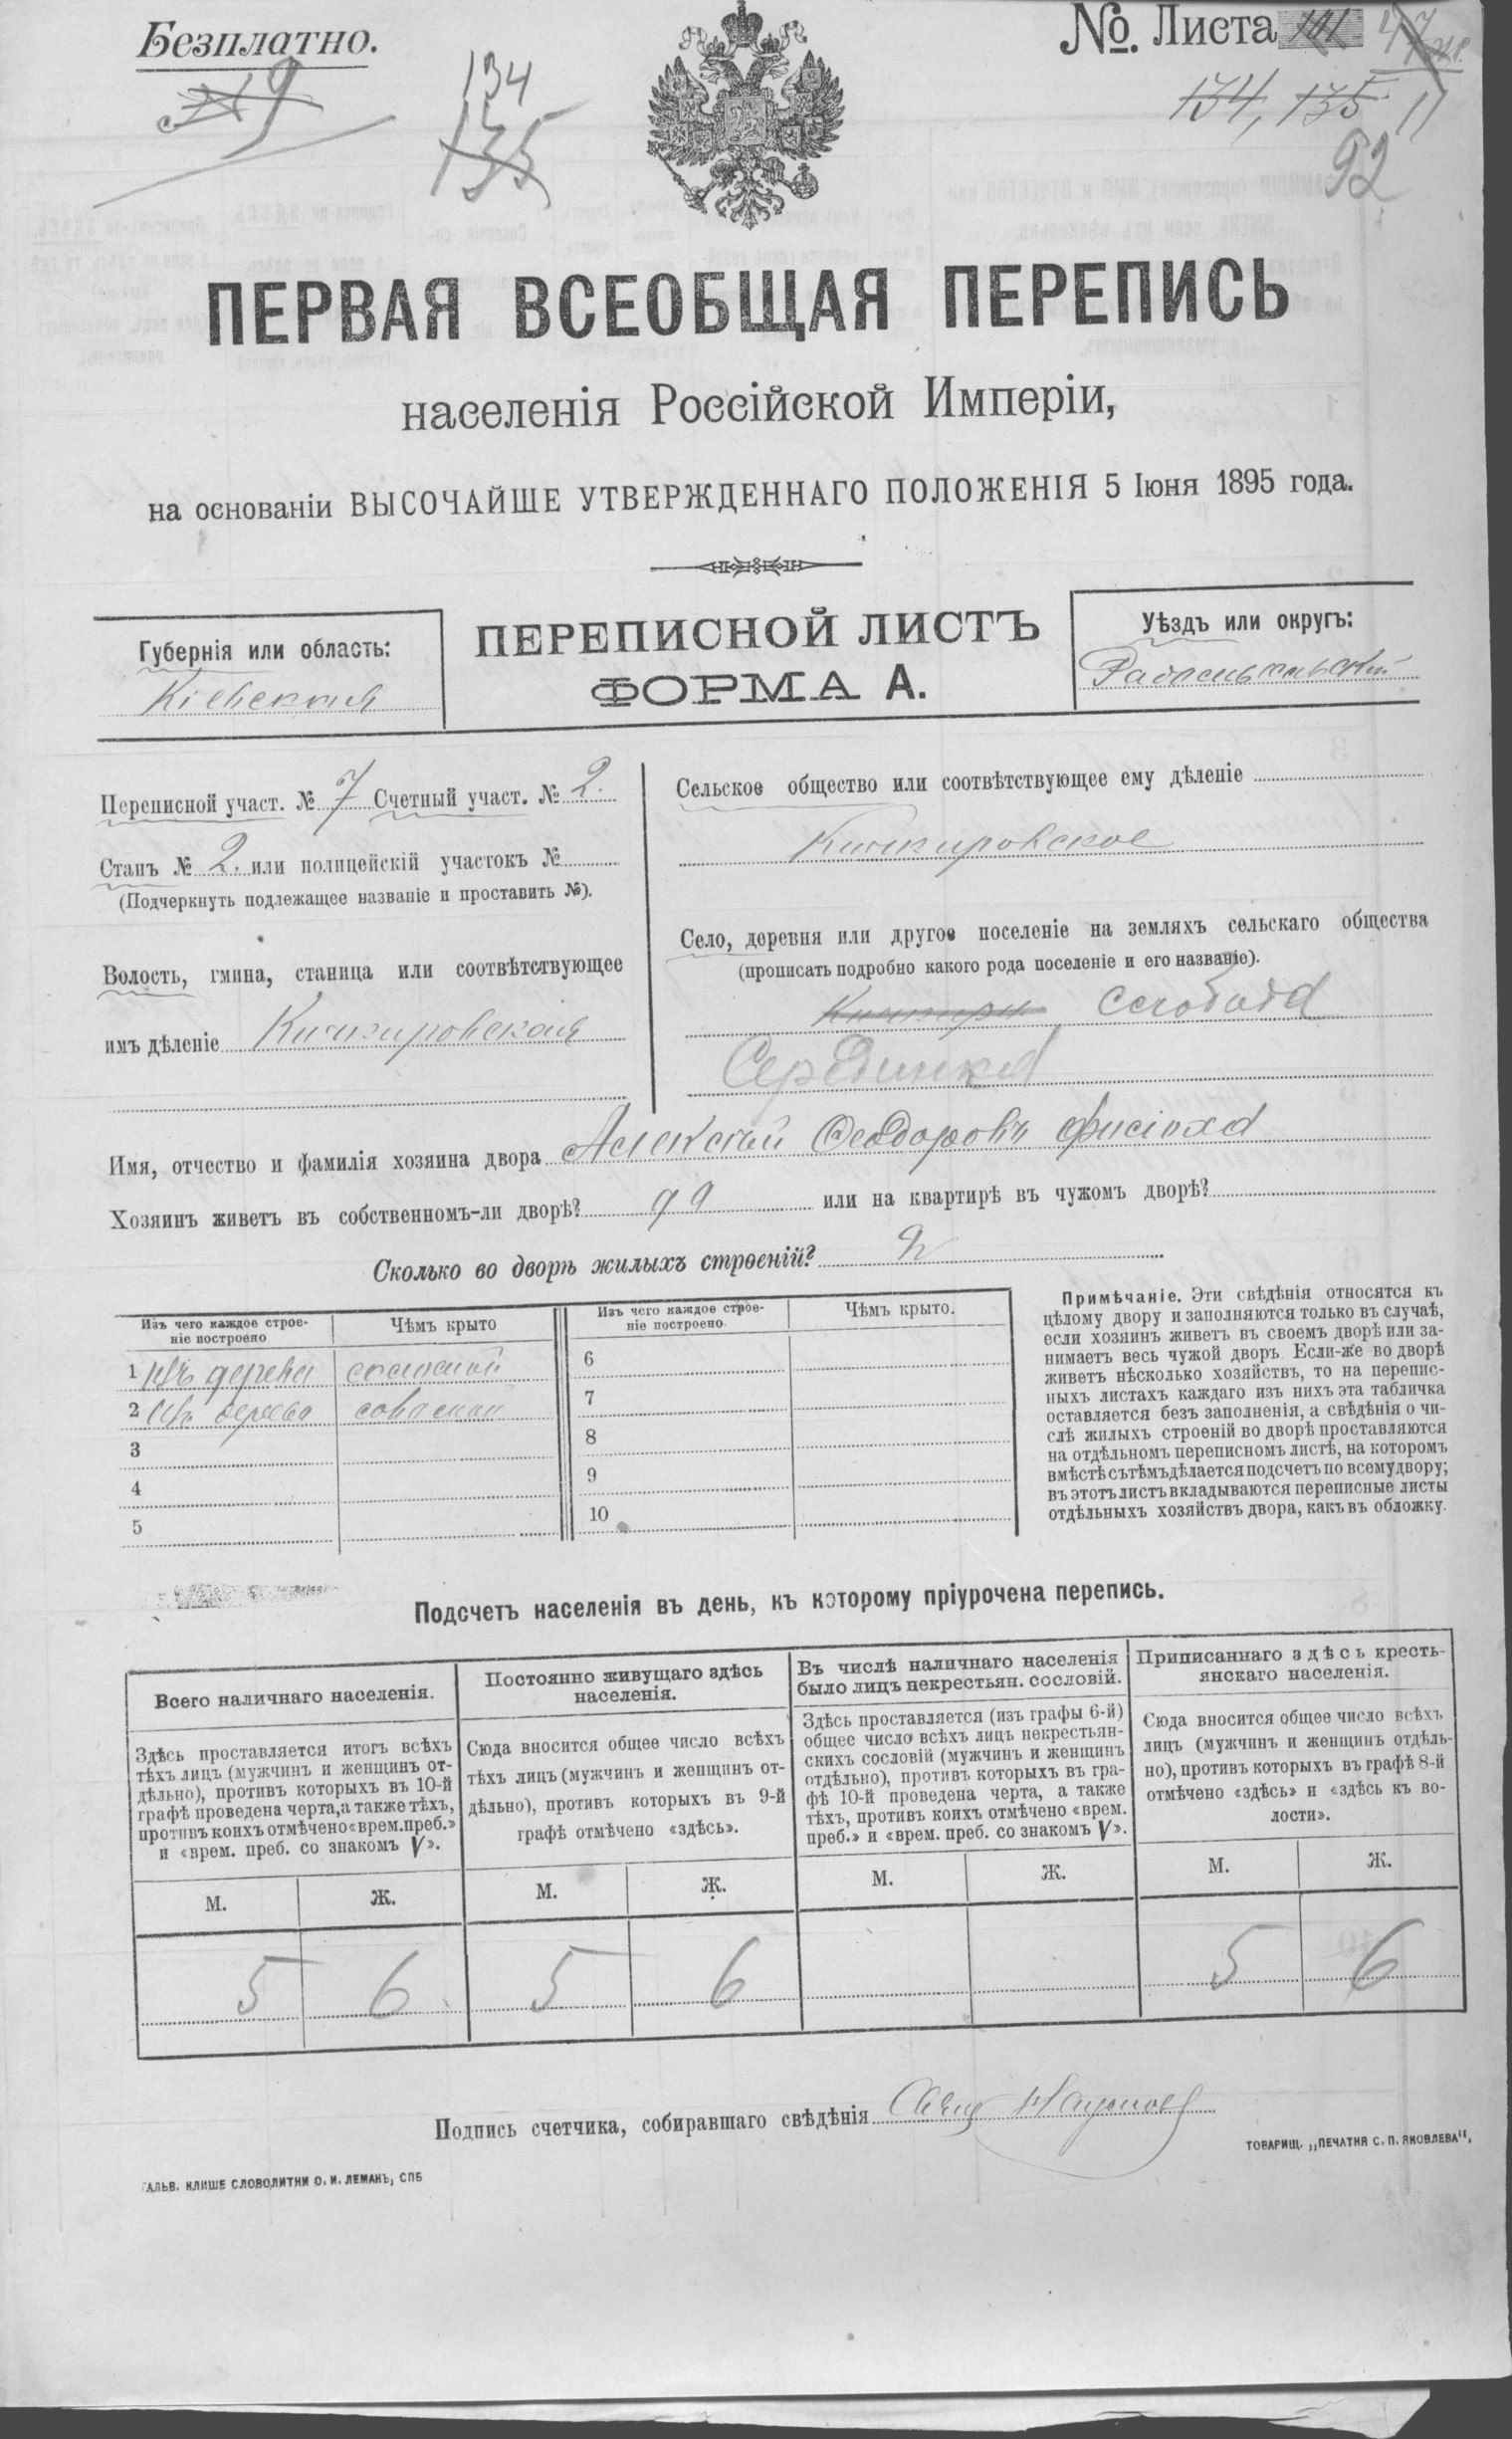 Безплатно.
No. Листа
9
134
135
134, 135
92
ПЕРВАЯ ВСЕОБЩАЯ ПЕРЕПИСЬ
населенія Россійской Имперіи,
на основаніи ВЫСОЧАЙШЕ УТВЕРЖДЕННАГО ПОЛОЖЕНІЯ 5 Іюня 1895 года.
Губернія или область:
Кіевская
ПЕРЕПИСНОЙ ЛИСТЪ
ФОРМА А.
Уѣздъ или округъ:
Радомысльскій
Переписной участ. № 7 Счетный участ. № 2.
Станъ № 2. или полицейскій участокъ №
(Подчеркнуть подлежащее названіе и проставить №).
Волость, гмина, станица или соотвѣтствующее
имъ дѣленіе Кичкировская
Сельское общество или соотвѣтствующее ему дѣленіе
Кичкировское
Село, деревня или другое поселеніе на земляхъ сельскаго общества
(прописать подробно какого рода поселеніе и его названіе).
Кичкири слобода
Серединка
Имя, отчество и фамилія хозяина двора Алексѣй Феодоровъ
Хозяинъ живетъ въ собственномъ-ли дворѣ? да или на квартирѣ въ чужомъ дворѣ?
Сколько во дворѣ жилыхъ строеній? 2
Изъ чего каждое строе-
ніе построено
Чѣмъ крыто
Изъ чего каждое строе-
ніе построено.
Чѣмъ крыто.
1 изъ дерева соломой
2 изъ дерева соломой
3
4
5
6
7
8
9
10
Примѣчаніе. Эти свѣдѣнія относятся къ
цѣлому двору и заполняются только въ случаѣ,
если хозяинъ живетъ въ своемъ дворѣ или за-
нимаетъ весь чужой дворъ. Если-же во дворѣ
живетъ нѣсколько хозяйствъ, то на перепис-
ныхъ листахъ каждаго изъ нихъ эта табличка
оставляется безъ заполненія, а свѣдѣнія о чи-
слѣ жилыхъ строеній во дворѣ проставляются
на отдѣльномъ переписномъ листѣ, на которомъ
вмѣстѣ съ тѣмъ дѣлается подсчетъ по всему двору;
въ этотъ листъ вкладываются переписные листы
отдѣльныхъ хозяйствъ двора, какъ въ обложку.
Подсчетъ населенія въ день, къ которому пріурочена перепись.
Всего наличнаго населенія.
Здѣсь проставляется итогъ всѣхъ
тѣхъ лицъ (мужчинъ и женщинъ от-
дѣльно), противъ которыхъ въ 10-й
графѣ проведена черта, а также тѣхъ,
противъ коихъ отмѣчено «врем. преб.»
и «врем. преб. со знакомъ V».
Постоянно живущаго здѣсь
населенія.
Сюда вносится общее число всѣхъ
тѣхъ лицъ (мужчинъ и женщинъ от-
дѣльно), противъ которыхъ въ 9-й
графѣ отмѣчено «здѣсь».
Въ числѣ наличнаго населенія
было лицъ некрестьян. сословій.
Здѣсь проставляется (изъ графы 6-й)
общее число всѣхъ лицъ некрестьян-
скихъ сословій (мужчинъ и женщинъ
отдѣльно), противъ которыхъ въ гра-
фѣ 10-й проведена черта, а также
тѣхъ, противъ коихъ отмѣчено «врем.
преб.» и «врем. преб. со знакомъ V».
Приписаннаго здѣсь кресть-
янскаго населенія.
Сюда вносится общее число всѣхъ
лицъ (мужчинъ и женщинъ отдѣль-
но), противъ которыхъ въ графѣ 8-й
отмѣчено «здѣсь» и «здѣсь къ во-
лости».
М. Ж. М. Ж. М. Ж. М. Ж.
5 6 5 6 5 6
Подпись счетчика, собиравшаго свѣдѣнія
ГАЛЬВ. КЛИШЕ СЛОВОЛИТНИ О. И. ЛЕМАНЪ, СПБ
ТОВАРИЩ. „ПЕЧАТНЯ С. П. ЯКОВЛЕВА“,